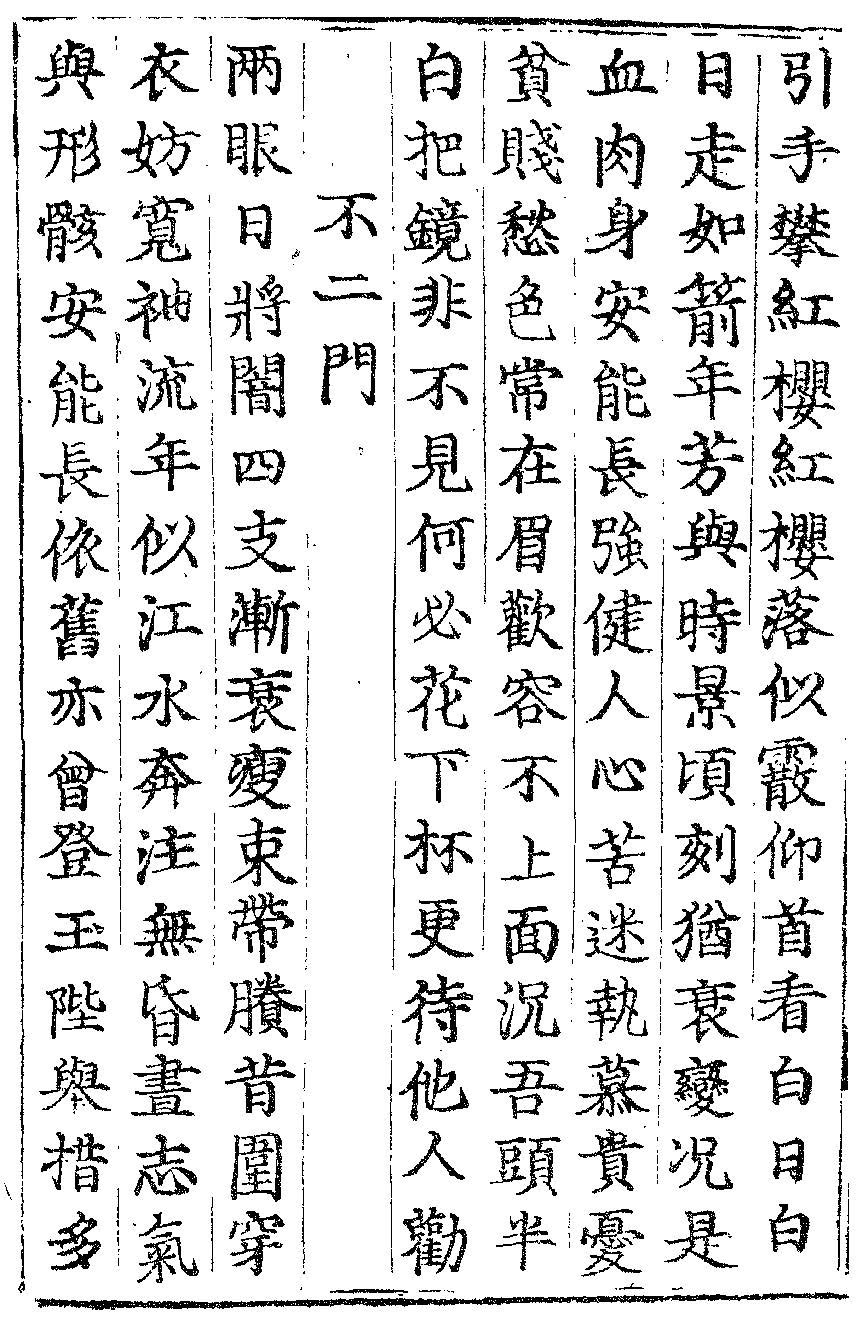 引手攀紅櫻紅櫻落似霰仰首看白日白
日走如箭年芳與時景頃刻猶衰變况是
血肉身安能長強健人心苦迷執慕貴憂
貧賤愁色常在眉歡容不上面沉吾頭半
白把鏡非不見何必花下杯更待他人勸
不二門
兩眼日將闇四支漸衰瘦束帶賸昔圍穿
衣妨寬袖流年似江水奔注無昏晝志氣
與形骸安能長依舊亦曾登玉陛舉措多